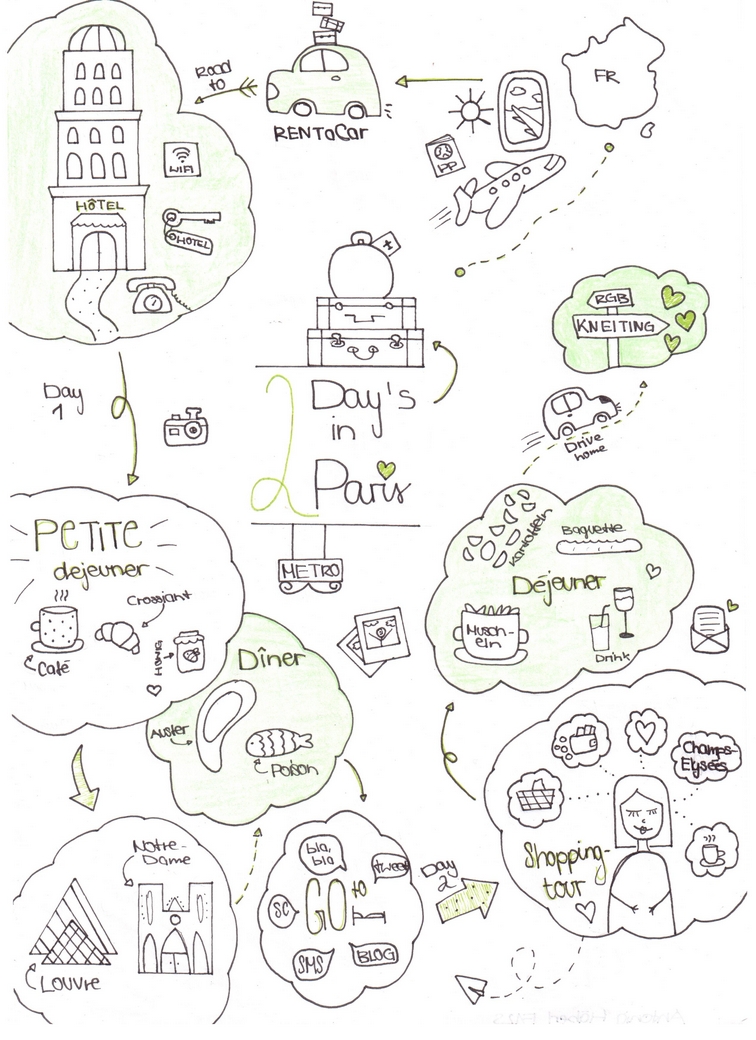 FR
PP
RENTaCar
Road
to
WIFI
HÔTEL
HOTEL
2 Day's
in
Paris
METRO
Day
1
PETITE
dejeuner
Crossiant
Café
HONIG
Dîner
Auster
Poison
Notre-
Dame
Louvre
bla,
bla
tweet
SC
GO to
SMS
BLOG
Day
2
Shopping-
tour
Champs-
Elysées
Kartoffeln
Baguette
Déjeuner
Musch-
eln
Drink
Drive
home
RGB
KNEITING